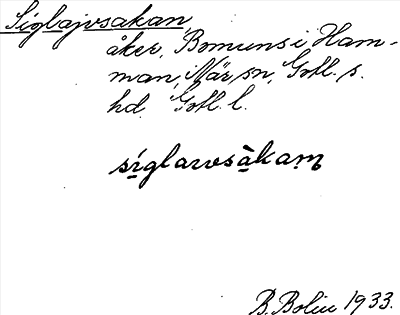 Siglajvsakan,
åker, Bomunsi Ham-
man, När sn, Gotl. s.
hd. Gotl. l.
siglaɪvsàkaṃ
B. Bolin 1933.